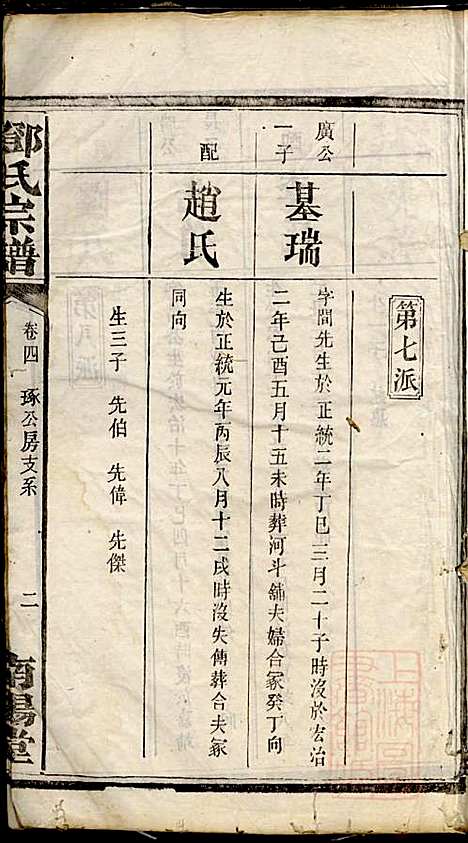 第七派
廣公
一子
基瑞
字間先生於正統二年丁巳三月二十子時沒於宏治
二年己酉五月十五未時葬河斗舖夫婦合冢癸丁向
配
趙氏
生於正統元年丙辰八月十二戌時沒失傳葬合夫冢
同向
生三子 先伯 先偉 先傑
鄒氏宗譜
卷四 琢公房支系
二
南陽堂